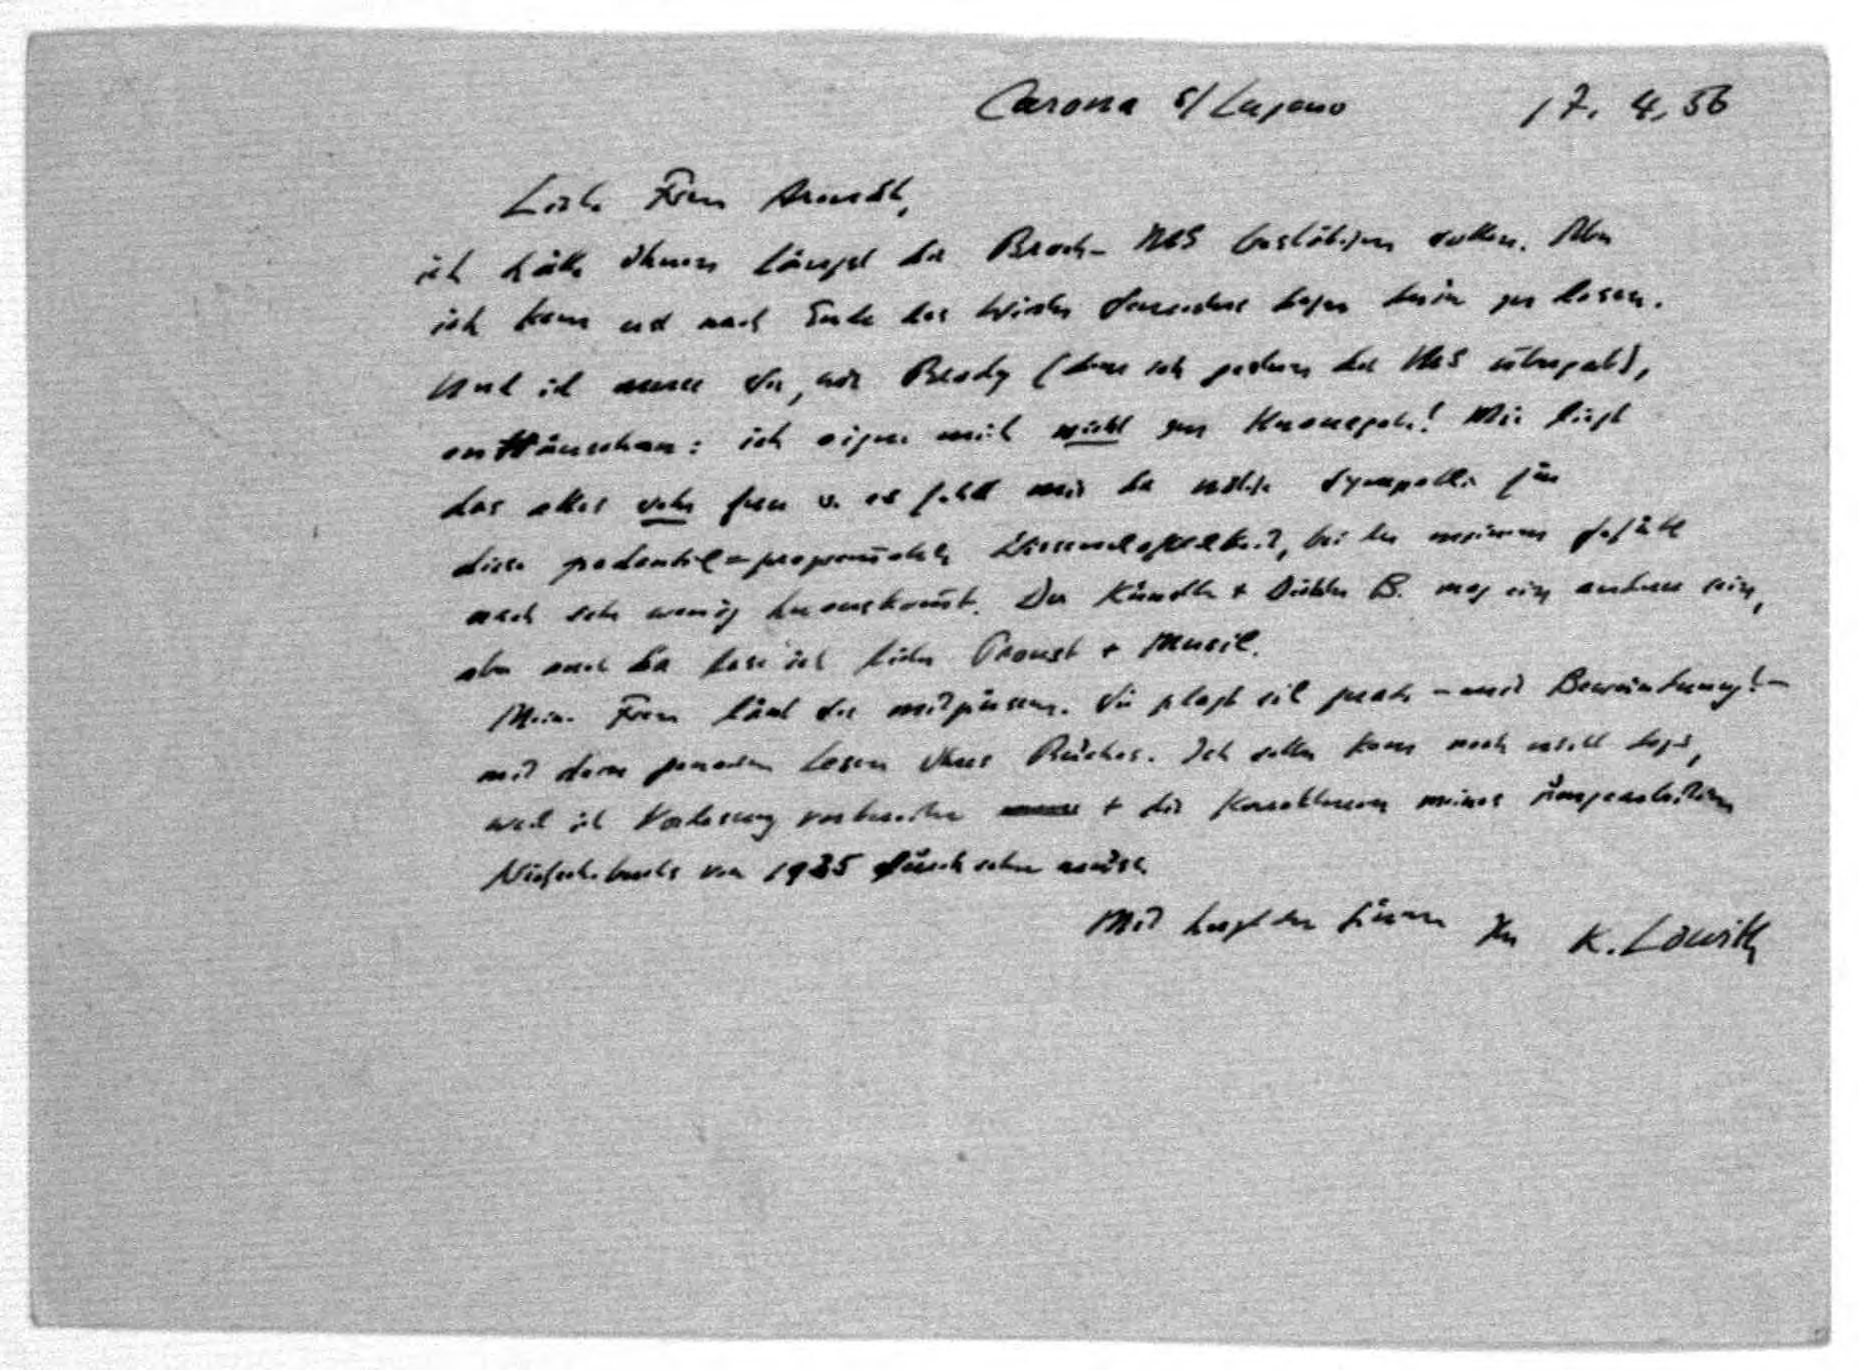 Carona s/ Lugano 17. 4. 56
Liebe Frau Arendt,
ich hätte Ihnen längst die Broch- MSS bestätigen sollen. Aber
ich kam erst nach Ende des Winter Semesters dazu darin zu lesen.
Und ich muss Sie, wie Brody (dem ich gestern die MSS übergab),
enttäuschen: ich eigne mich nicht zur Herausgabe! Mir liegt
das alles sehr fern u. es fehlt mir die nötige Sympathie für
diese Wissenschaftlichkeit, bei der meinem Gefühl
nach sehr wenig herauskomt. Der Künstler + Dichter B. mag ein anderer sein,
aber auch da lese ich lieber Proust + Musil.
Meine Frau lässt Sie mitgrüssen. Sie plagt sich grade – mit Bewunderung! –
mit dem genauen Lesen Ihres Buches. Ich selber kam noch nicht dazu,
weil ich Vorlesung vorbereiten + die Korrekturen meines umgearbeiteten
Nietzschebuchs von 1935 durchsehen musste.
Mit herzlichen Grüssen Ihr K. Löwith